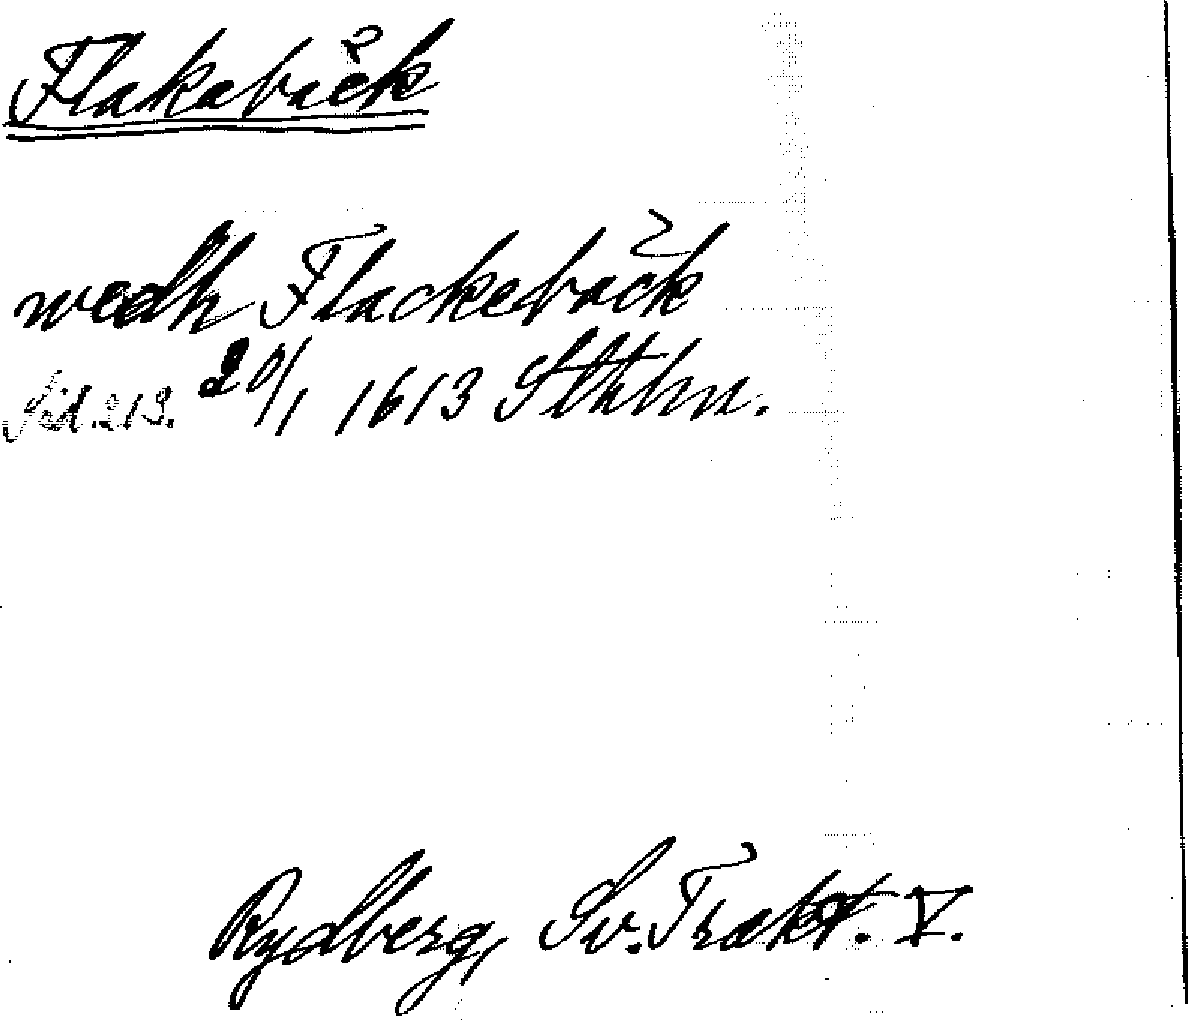 Flakabäck
wedh Flackebäck
Sid. 213. 20/1 1613 Sthlm.
Rydberg, Sv. Trakt. V.